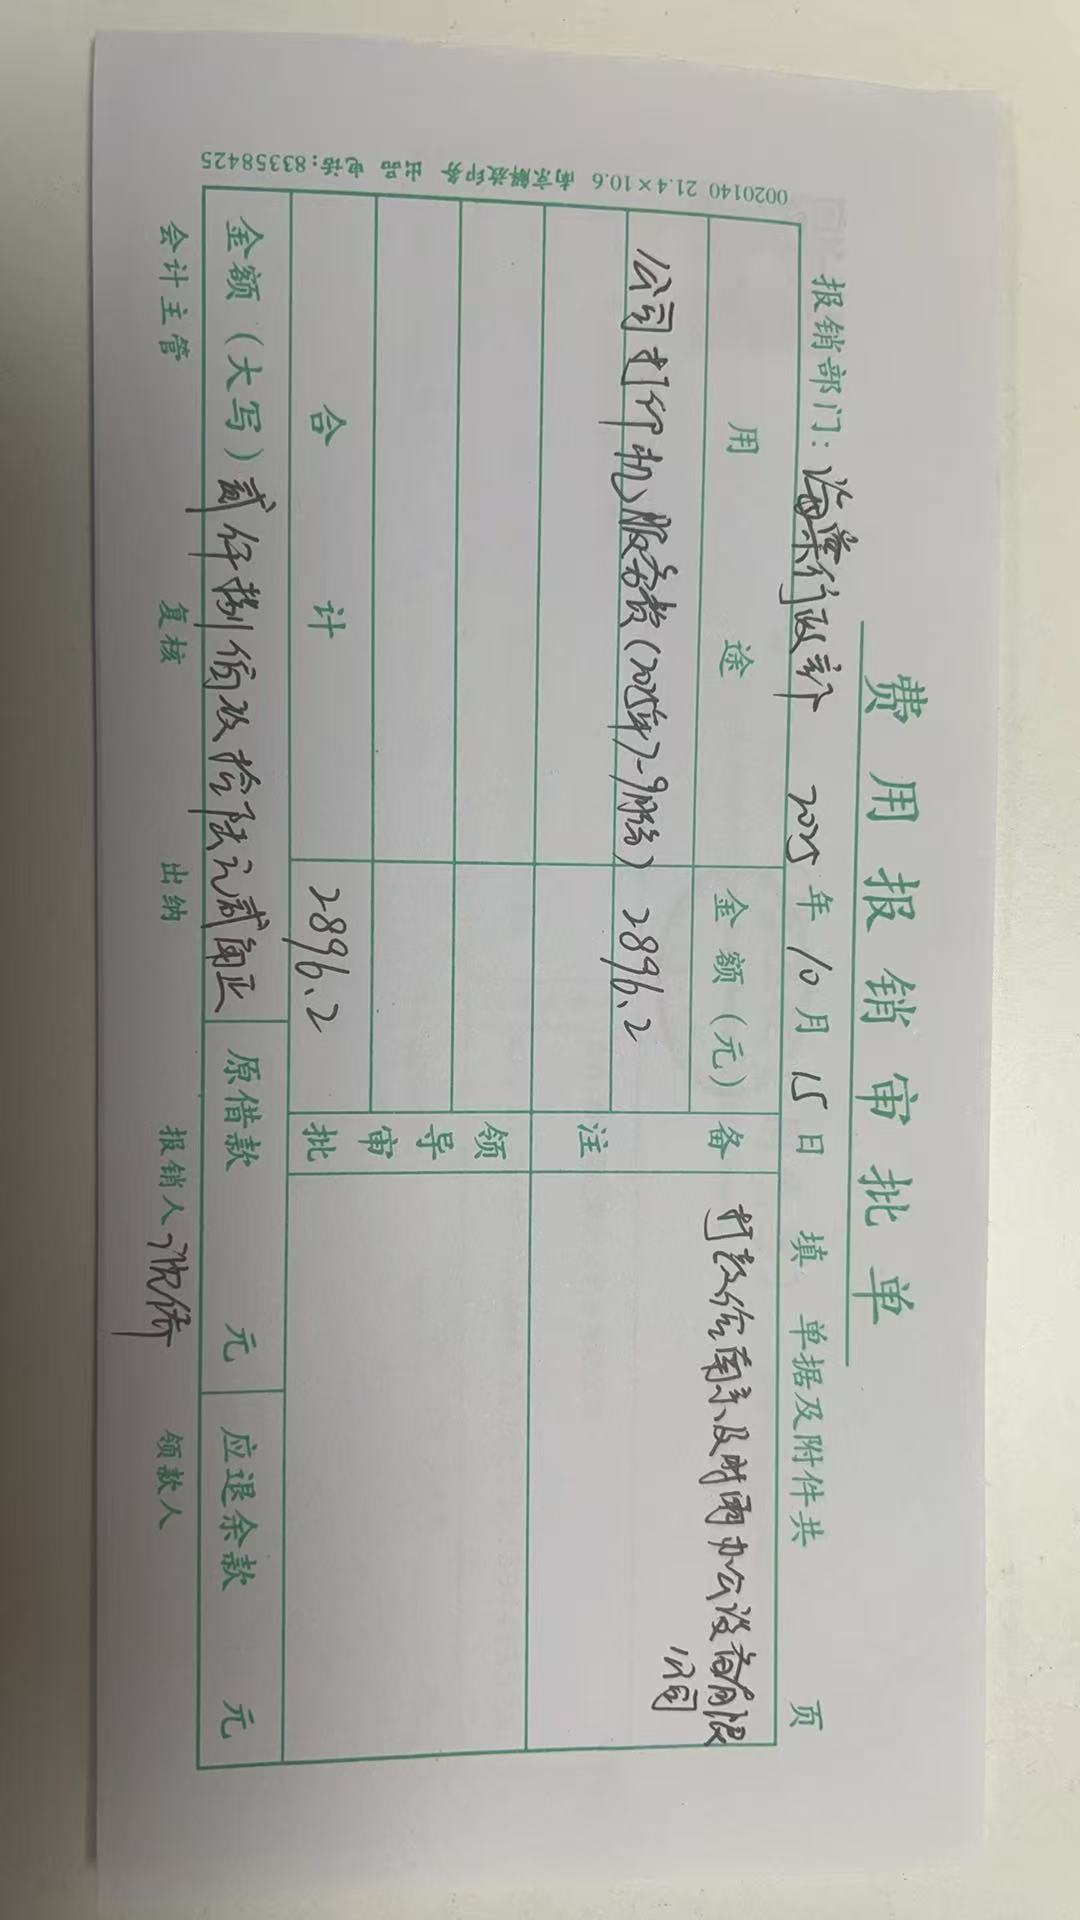 费用报销审批单
报销部门：海棠行政部 2025年10月15日填 单据及附件共 页
用途 金额（元） 备注
公司打印机服务费（2025年7-9月份） 2896.2 打款给南京及时雨办公设备有限
公司
领导审批
合计 2896.2
金额（大写）贰仟捌佰玖拾陆元贰角正 原借款 元 应退余款 元
会计主管 复核 出纳 报销人 领款人
0020140 21.4×10.6 南京解放印务 出品 电话：83358425